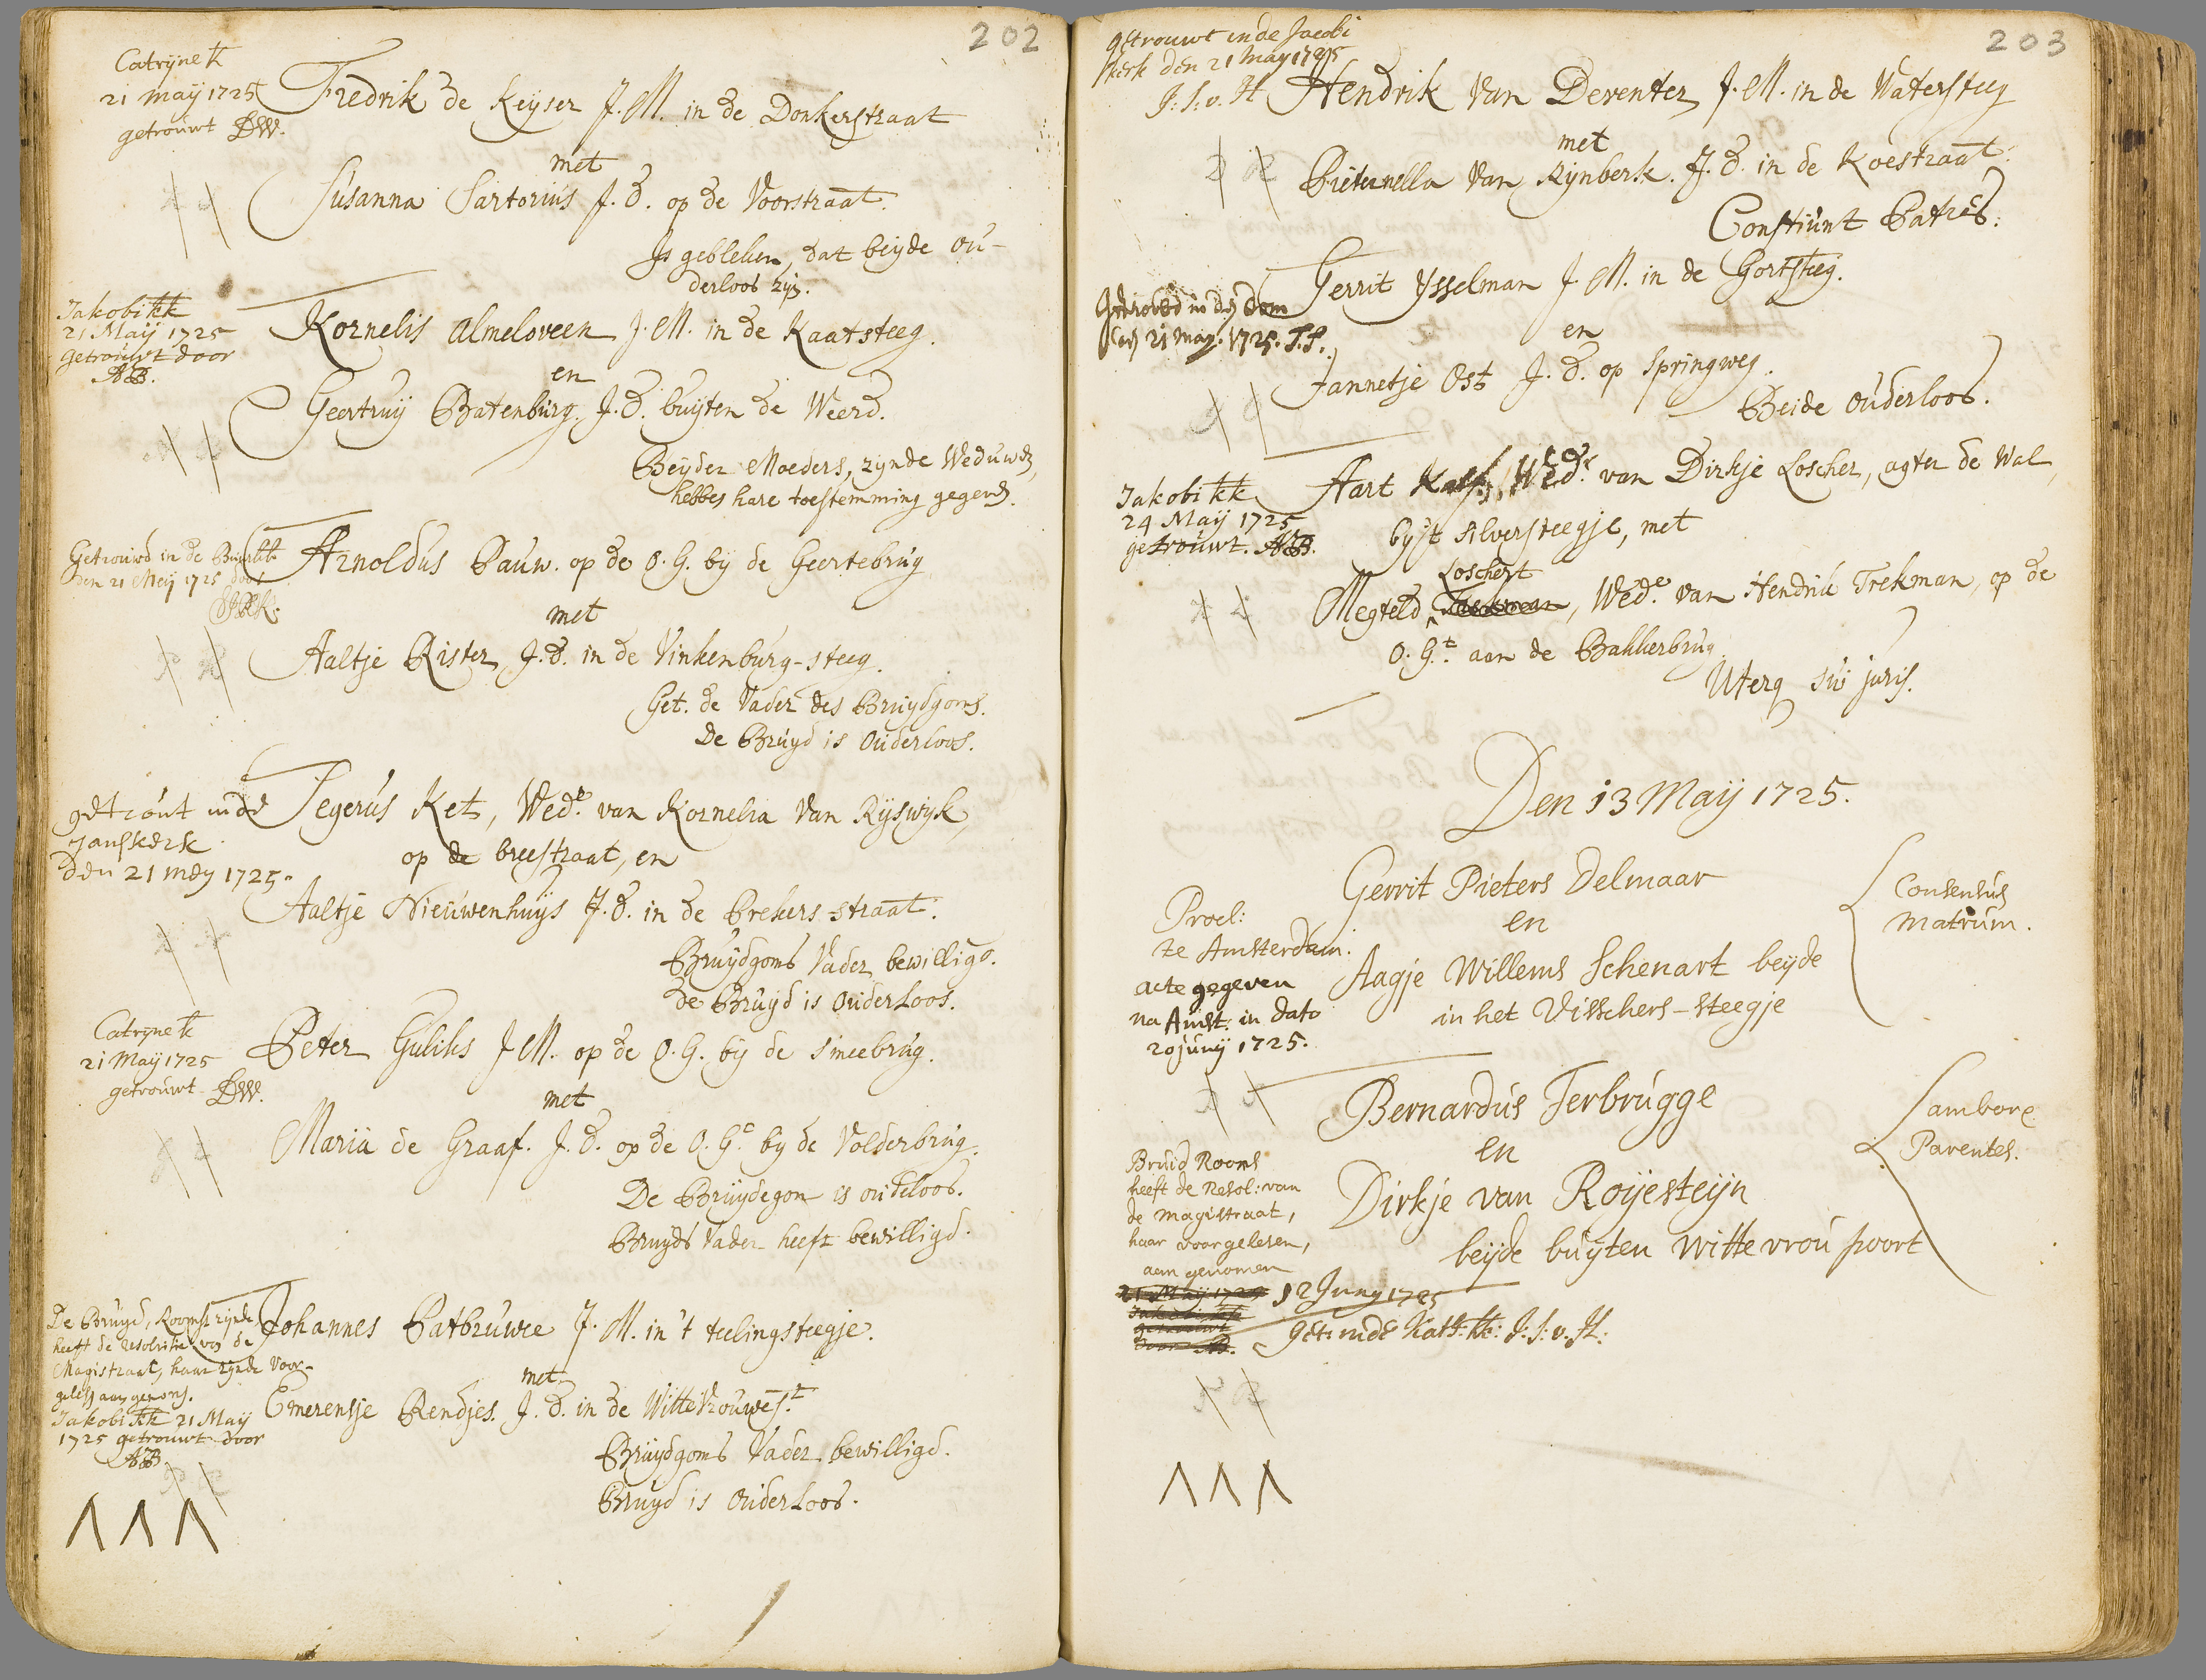 202
Catrijne k
21 maij 1725
getrouwt DW.
Fredrik de Keijser J.M. in de Donkerstraat
met
Susanna Sartorius J.d. op de Voorstraat.
Is gebleken, dat beijde ou-
derloos zijn.
Jakobi kk
21 Maij 1725
getrouwt door
AB.
Kornelis Almeloveen J.M. in de Kaatsteeg.
en
Geertruij Batenburg J.d. buijten de Weerd.
Beijder Moeders, zijnde Weduwen,
hebben hare toestemming gegeven.
Getrouwd in de Buurkk
den 21 Meij 1725 door
Arnoldus Pauw. op de O.G. bij de Geertebrug
met
Aaltje Rister J.d. in de Vinkenburg-steeg.
Get. de Vader des Bruijdgoms.
De Bruijd is Ouderloos.
getrout inde
Janskerk
den 21 meij 1725.
Segerus Ket, Wedr. van Kornelia van Rijswijk,
op de breestraat, en
Aaltje Nieuwenhuijs J.d. in de Brekers-straat.
Bruijdgoms Vader bewilligd.
de Bruijd is Ouderloos.
Catrijne k
21 Maij 1725
getrouwt DW.
Peter Guliks J.M. op de O.G. bij de Smeebrug.
met
Maria de Graaf. J.d. op de O.Gt. bij de Volderbrug.
De Bruijdegom is ouderloos.
Bruijds Vader heeft bewilligd.
De Bruijd, Rooms zijnde
heeft de resolutie van de
Magistraat, haar zijnde voor-
gelesen aangenomen.
Jakobi kk 21 Maij
1725 getrouwt door
AB.
Johannes Batbruwee J.M. in 't teelingsteegje.
met
Emerensje Rendjes. J.d. in de Wittevrouwest.
Bruijdgoms Vader bewilligd.
Bruijd is Ouderloos.
203
getrouwt in de Jacobi
kerk den 21 maij 1725
J:S:v.H
Hendrik van Deventer J.M. in de Watersteeg
met
Pieternella van Rijnberk. J.d. in de Koestraat.
Consentiunt Patres.
Getroud in den Dom
den 21 maij. 1725.
Gerrit Ysselman J.M. in de Gortsteeg.
en
Jannetje Ost J.d. op Springweg.
Beide Ouderloos.
Jakobi kk
24 Maij 1725
getrouwt. AB.
Aart Kalf, Wedr. van Dirkje Loscher, agter de Wal,
bij 't silversteegje, met
Loschert
Megteld, Wede. van Hendrik Trekman, op de
O.Gt. aan de Bakkerbrug.
Uterq sui juris.
Den 13 Maij 1725.
Procl:
te Amsterdam.
acte gegeven
na Amst: in dato
20 junij 1725.
Gerrit Pieters Delmaar
en
Aagje Willems Schenart beijde
in het Visschers-steegje
Consensus
Matrum.
Bruid Rooms
heeft de Resol: van
de Magistraat,
haar voorgelesen,
aan genomen
21 Maij 1725
12 Junij 1725
get: in de Kath: kk: J:S:v.H:
Bernardus Terbrugge
en
Dirkje van Roijesteijn
beijde buijten Witte vrou poort
Parentes.